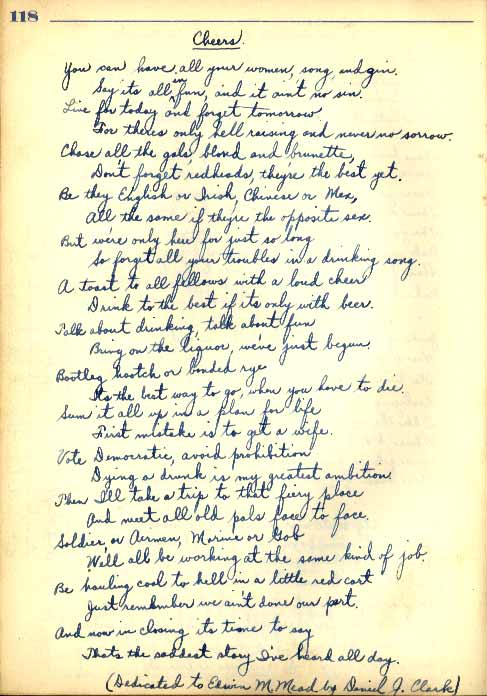 118
Cheers.
You can have all your women, song, and gin.
Say its all in fun, and it ain't no sin.
Live for today and forget tomorrow
For theres only hell raising and never no sorrow.
Chase all the gals, blond and brunette,
Don't forget redheads, they're the best yet.
Be they English or Irish, Chinese or Mex,
All the same if they're the opposite sex.
But we're only here for just so long
So forget all your troubles in a drinking song.
A toast to all fellows with a loud cheer
Drink to the best if its only with beer.
Talk about drinking, talk about fun
Bring on the liquor, we've just begun.
Bootleg hootch or bonded rye
Its the best way to go, when you have to die.
Sum it all up in a plan for life
First mistake is to get a wife.
Vote Democratic, avoid prohibition
Dying a drunk is my greatest ambition.
Then I'll take a trip to that fiery place
And meet all old pals face to face.
Soldier or Airmen, Marine or Gob
We'll all be working at the same kind of job.
Be hauling coal to hell in a little red cart
Just remember we ain't done our part.
And now in closing its time to say
Thats the saddest story I've heard all day.
(Dedicated to Edwin M. Mead by Daniel J. Clark)